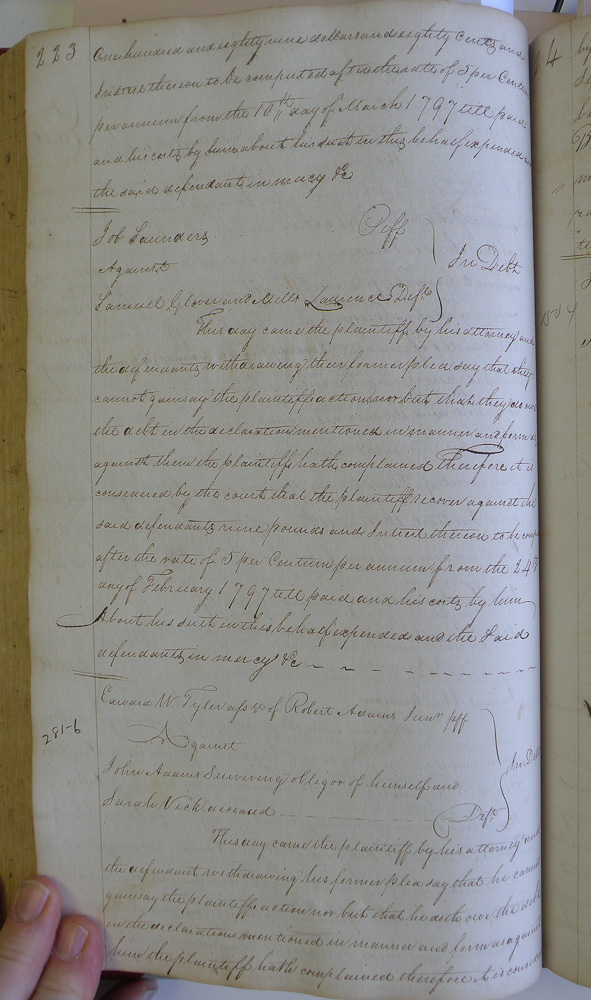 223
One hundred and eighty nine dollars and eighty cents and
Intrest thereon to be computed after the rate of 5 per Centum
per annum from the 10th day of March 1797 till paid
and his costs by him about his suit in this behalf expended and
the said defendants in mercy &c
Job Saunders Plff
Against
In Debt
Samuel Glover and Mills Laurence Defts
This day came the plaintiff by his attorney and
the defendants withdrawing their former plea say that they
cannot gainsay the plaintiffs action nor but that they do owe
the debt in the declaration mentioned in manner and form as
against them the plaintiff hath complained Therefore it is
considered by the court that the plaintiff recover against the
said defendants nine pounds and Intrest thereon to be comp
after the rate of 5 per Centum per annum from the 24th
day of February 1797 till paid and his costs by him
About his suit in this behalf expended and the Said
defendants in mercy &c
Edward W Tyler assee of Robert Adams Junr plff
281-6
Against
In Debt
John Adams Surviving obligor of himself and
Sarah Vick deceased Deft
This day came the plaintiff by his attorney and
the defendant withdrawing his former plea say that he cannot
gainsay the plaintiffs action nor but that he doth owe the debt
in the declaration mentioned in manner and form as against
him the plaintiff hath complained therefore it is consider
24
1504